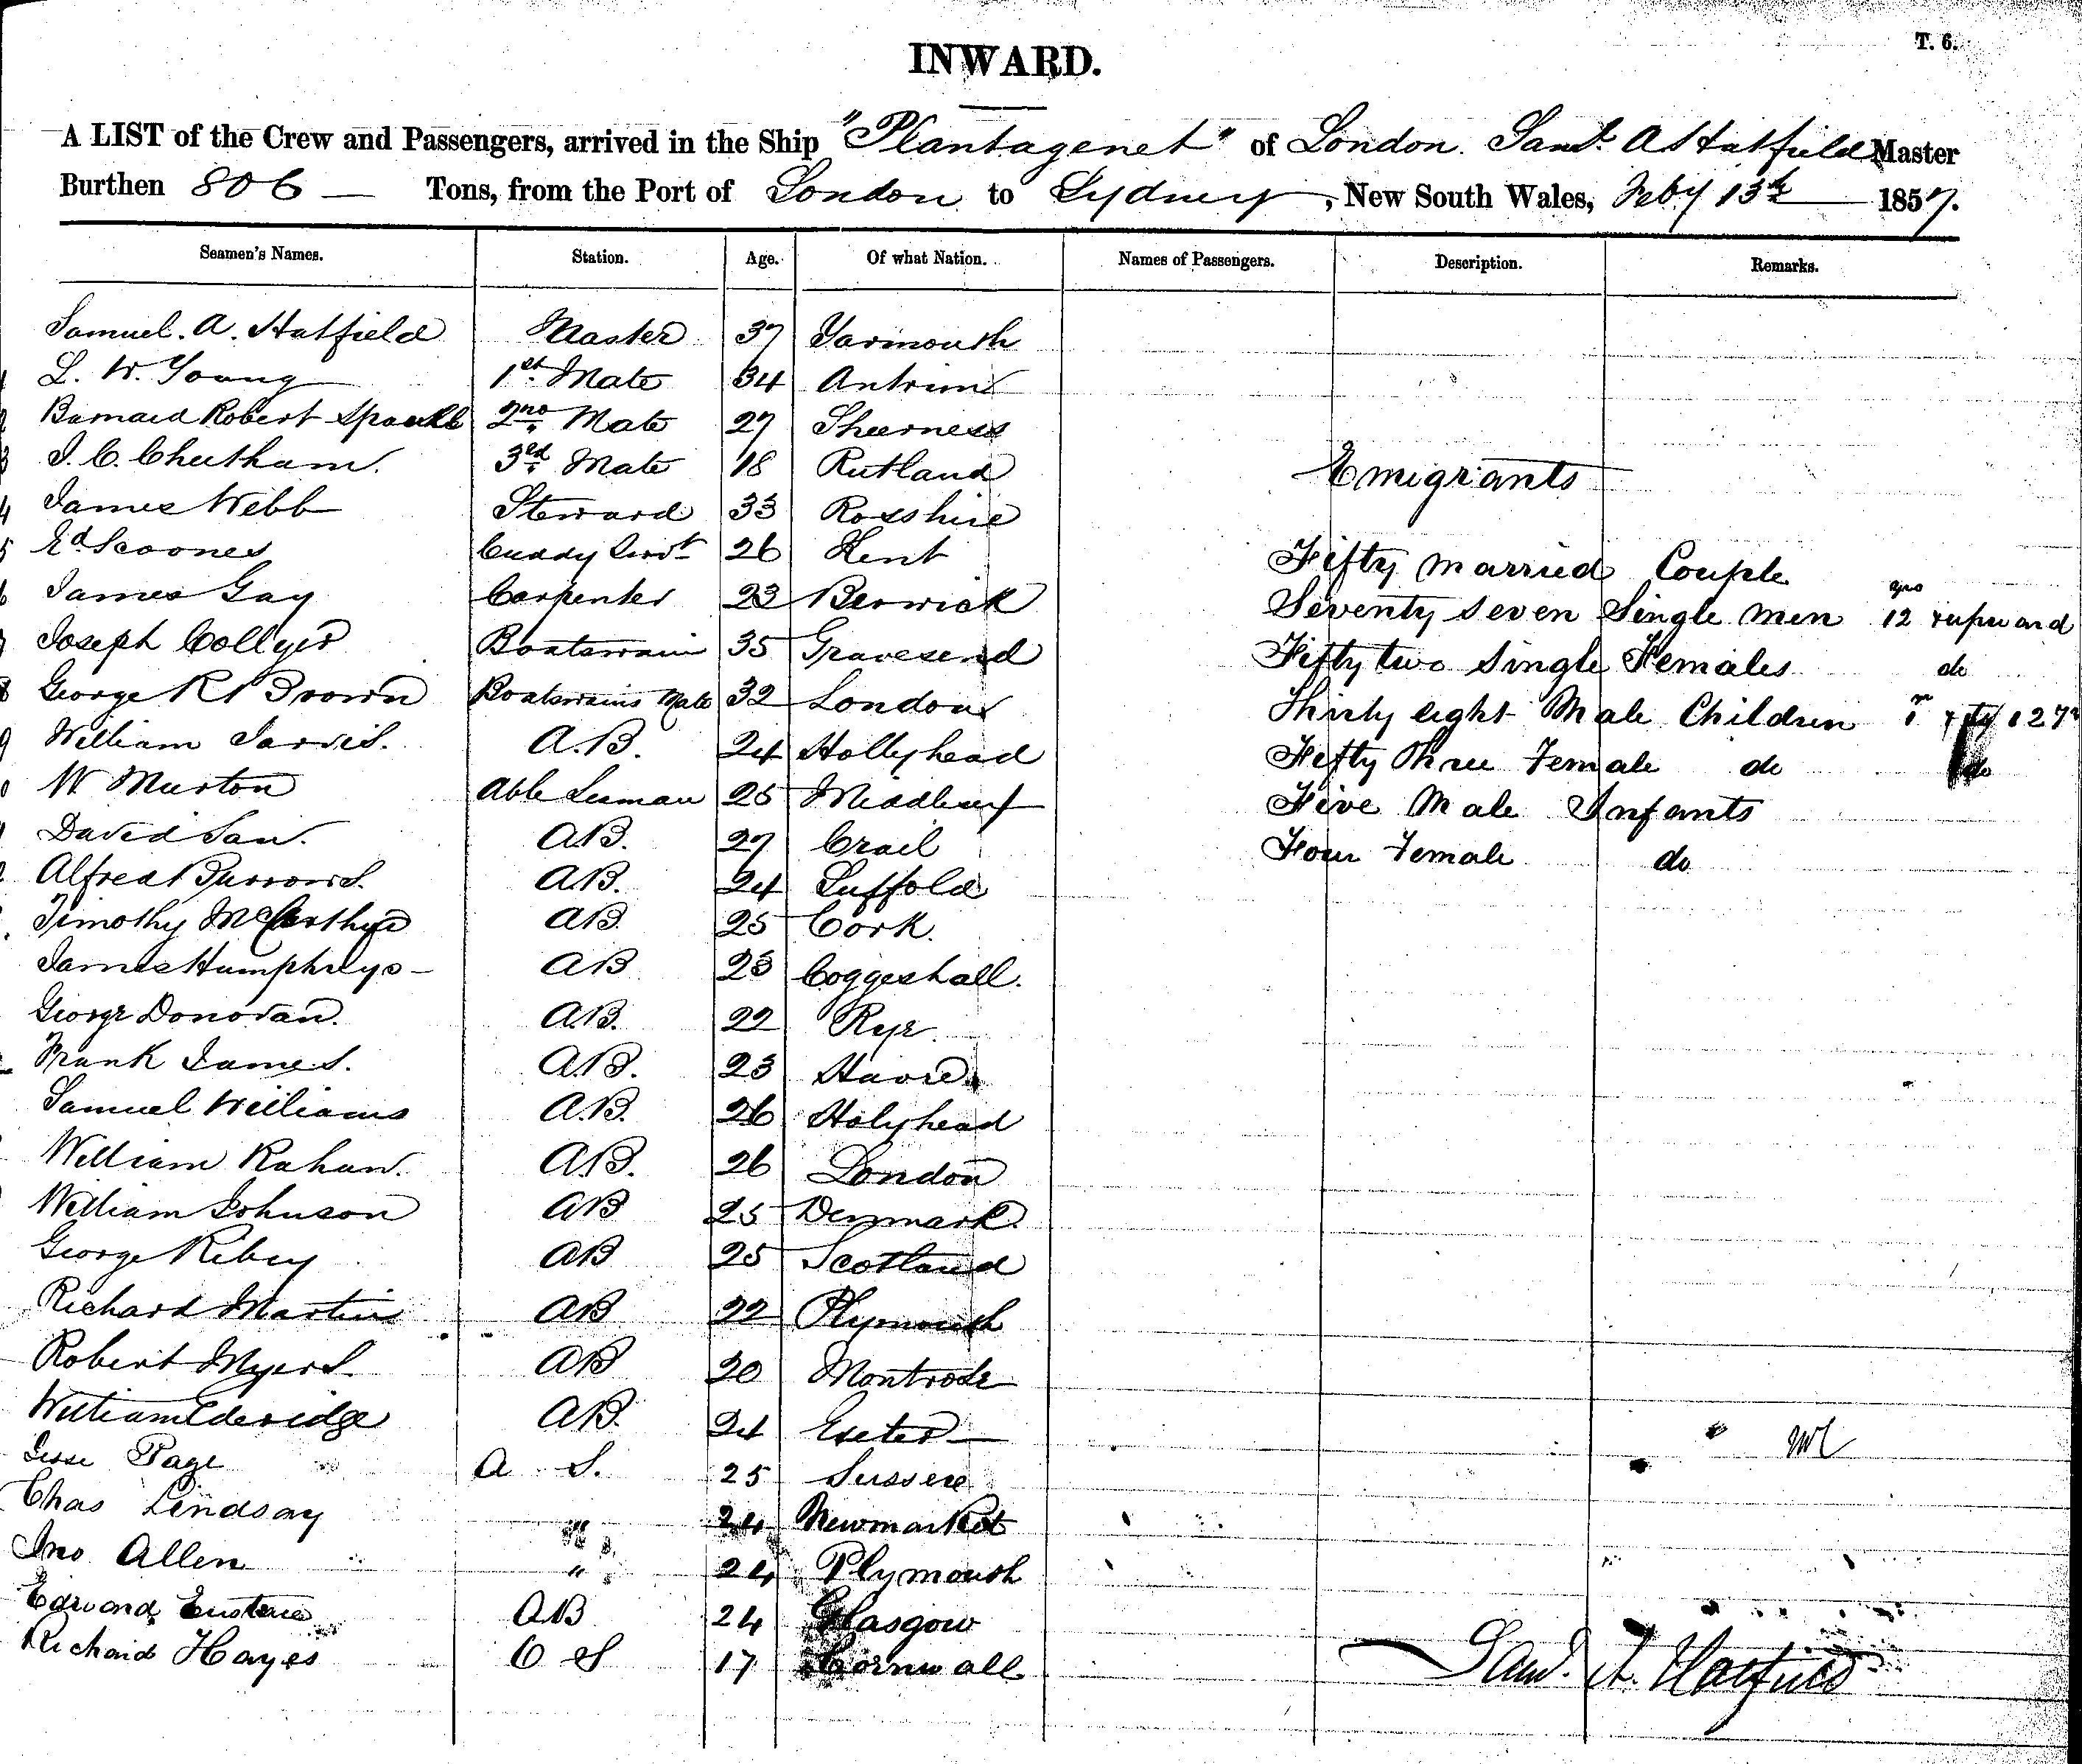 T. 6.
INWARD.
A LIST of the Crew and Passengers, arrived in the Ship "Plantagenet" of London. Saml. A Hatfield Master
Burthen 806 — Tons, from the Port of London to Sydney, New South Wales, Feby 13th 1857.
Seamen's Names. Station. Age. Of what Nation. Names of Passengers. Description. Remarks.
Samuel. A. Hatfield Master 37 Yarmouth
L. W. Young 1st Mate 34 Antrim
Barnard Robert 2nd Mate 27 Sheerness
J. C. Cheetham. 3rd Mate 18 Rutland
James Webb Steward 33 Rosshire
Ed Scoones Cuddy Servt 26 Kent
James Gay Carpenter 23 Berwick
Joseph Collyer Boatswain 35 Gravesend
George Rt Brown Boatswains Mate 32 London
William Jarvis. A.B. 24 Hollyhead
W Murton Able Seaman 25
David Law. AB. 27 Crail
Alfred Burrows. AB. 24 Suffold
Timothy McCarthy AB 25 Cork.
James Humphreys — AB 23 Coggeshall.
George Donovan. A.B. 22 Rye.
Frank James. A.B. 23 Havre
Samuel Williams A.B. 26 Holyhead
William Rahan. A.B. 26 London
William Johnson AB 25 Denmark.
George AB 25 Scotland
Richard Martin AB 22 Plymouth
Robert Myers. AB 20 Montrose
William Elderidge AB. 24 Exeter —
Jesse Page A S. 25 Sussex
Chas Lindsay " 24 Newmarket
Jno Allen " 24 Plymouth
Edward Eustace AB 24 Glasgow
Richard Hayes O S 17 Cornwall
Emigrants
Fifty married Couple
Seventy seven Single men 12 upward
Fifty two Single Females do
Thirty eight Male Children
Fifty Three Female do do
Five Male Infants
Four Female do
Saml. A. Hatfield